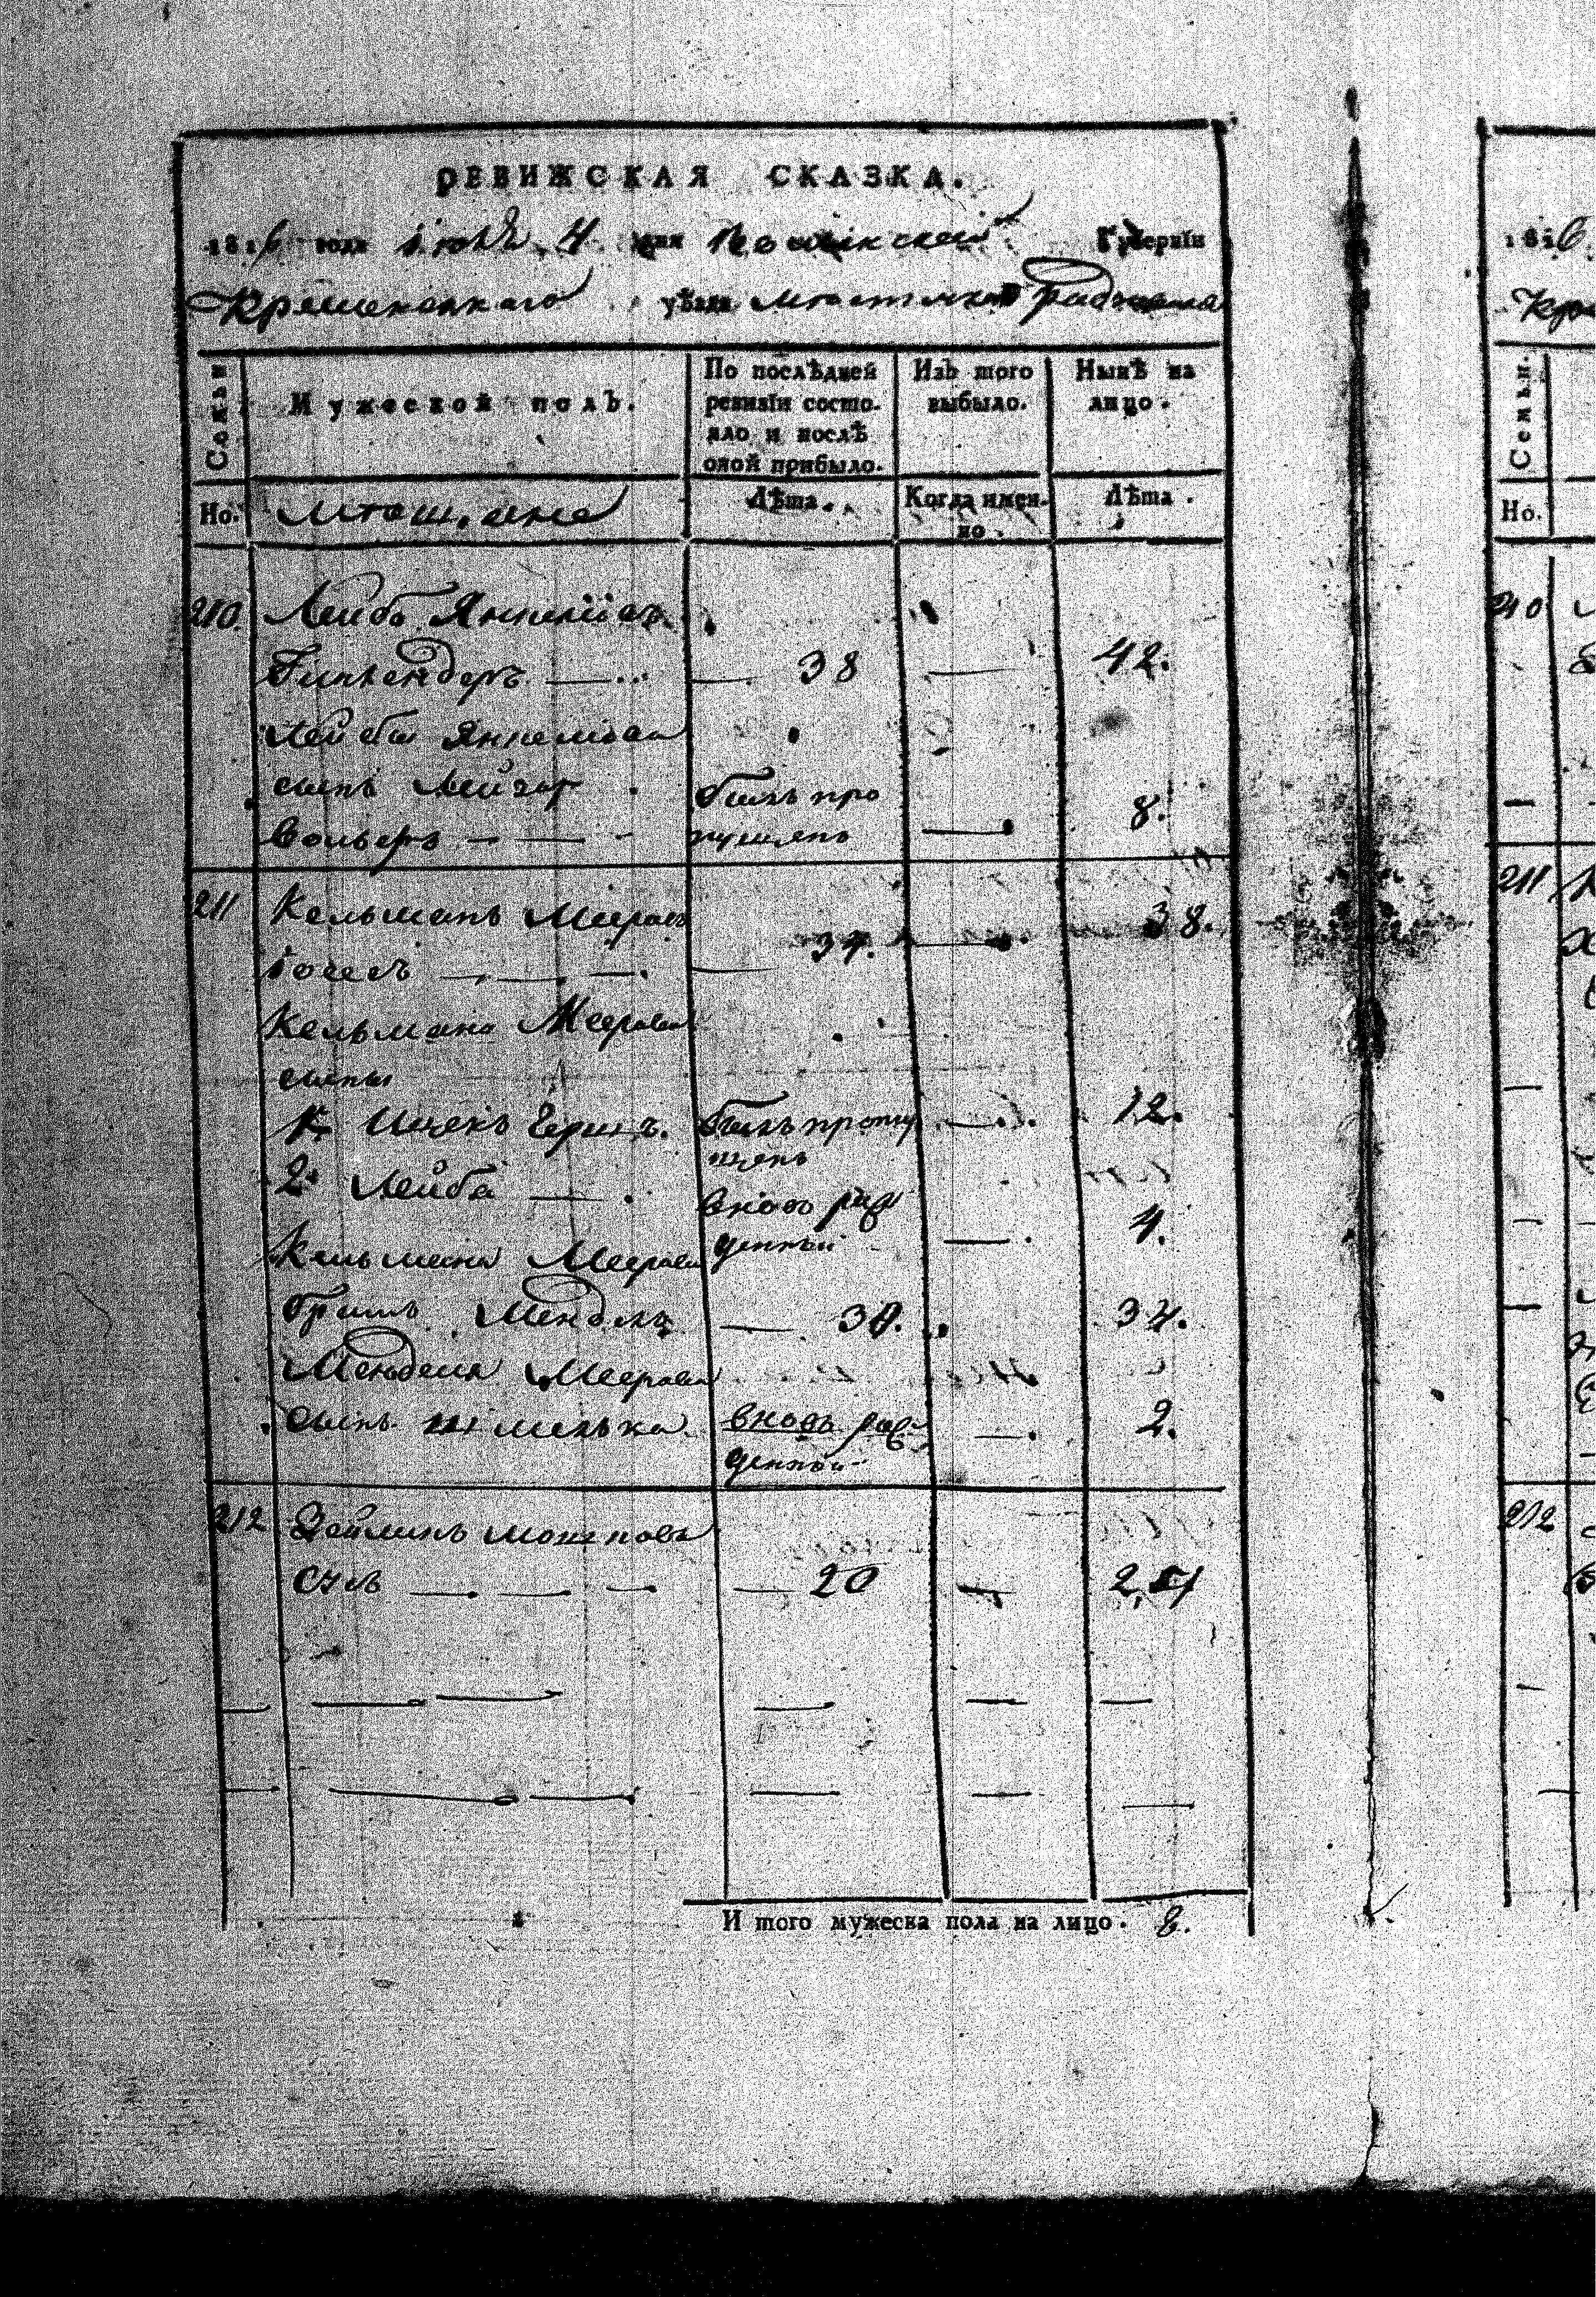 РЕВИЖСКАЯ СКАЗКА.
1816 года Июля 4 дня Волынской Губерніи
Кременецкаго уѣзда местечка Радзивилова
Семьи
Мужеской полъ.
По послѣдней ревизіи состояло и послѣ оной прибыло.
Изъ того выбыло.
Нынѣ на лицо.
Но. Мещане Лѣта. Когда именно. Лѣта.
210. Лейба Янкелiовъ
38 — 42.
Лейбы Янкелiова
сынъ Лейзор былъ про
Вольфъ — — пущенъ — 8.
211 Кельманъ Мееровъ 38.
— 34. —
Кельмана Меерова
сыны
1. Ицекъ Гершъ. былъ пропу — 12.
щенъ
2. Лейба — вновь рож
денный — 4.
Кельмана Меерова
братъ Мендель — 30. 34.
Менделя Меерова
сынъ Шмелька вновь рож — 2.
денный
212 Зейлинъ Мошковъ
— — — — 20 — 24
Итого мужеска пола на лицо. 8.
1816
Кре
Семьи.
Но.
210
211
212